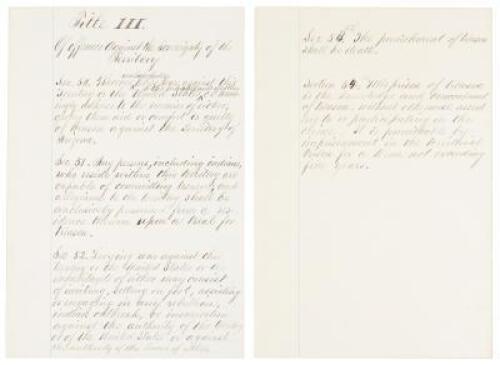 Title III.
Offences against the sovereignty of the
Territory
Sec. 50. Whoever war against this
Territory or the United States, or
adheres to the enemies of either,
giving them aid or comfort is guilty
of treason against the Territory of
Arizona.
Sec. 51. Any persons, including indians,
who reside within this Territory are
capable of committing treason, and
allegiance to the territory shall be
conclusively presumed from a resi
dence therein upon a trial for
treason.
Sec. 52. Levying war against this
Territory or the United States or the
inhabitants of either may consist
of inciting, setting on foot, assisting
or engaging in any rebellion,
indian outbreak, or insurrection
against the authority of the Territory
or of the United States or against
the authority of the laws of
Sec. 53. The punishment of treason
shall be death.
Section 54. Misprison of treason
is the knowledge and concealment
of treason, without otherwise assent
ing to or participating in the
crime. It is punishable by
imprisonment in the territorial
prison for a term not exceeding
five years.